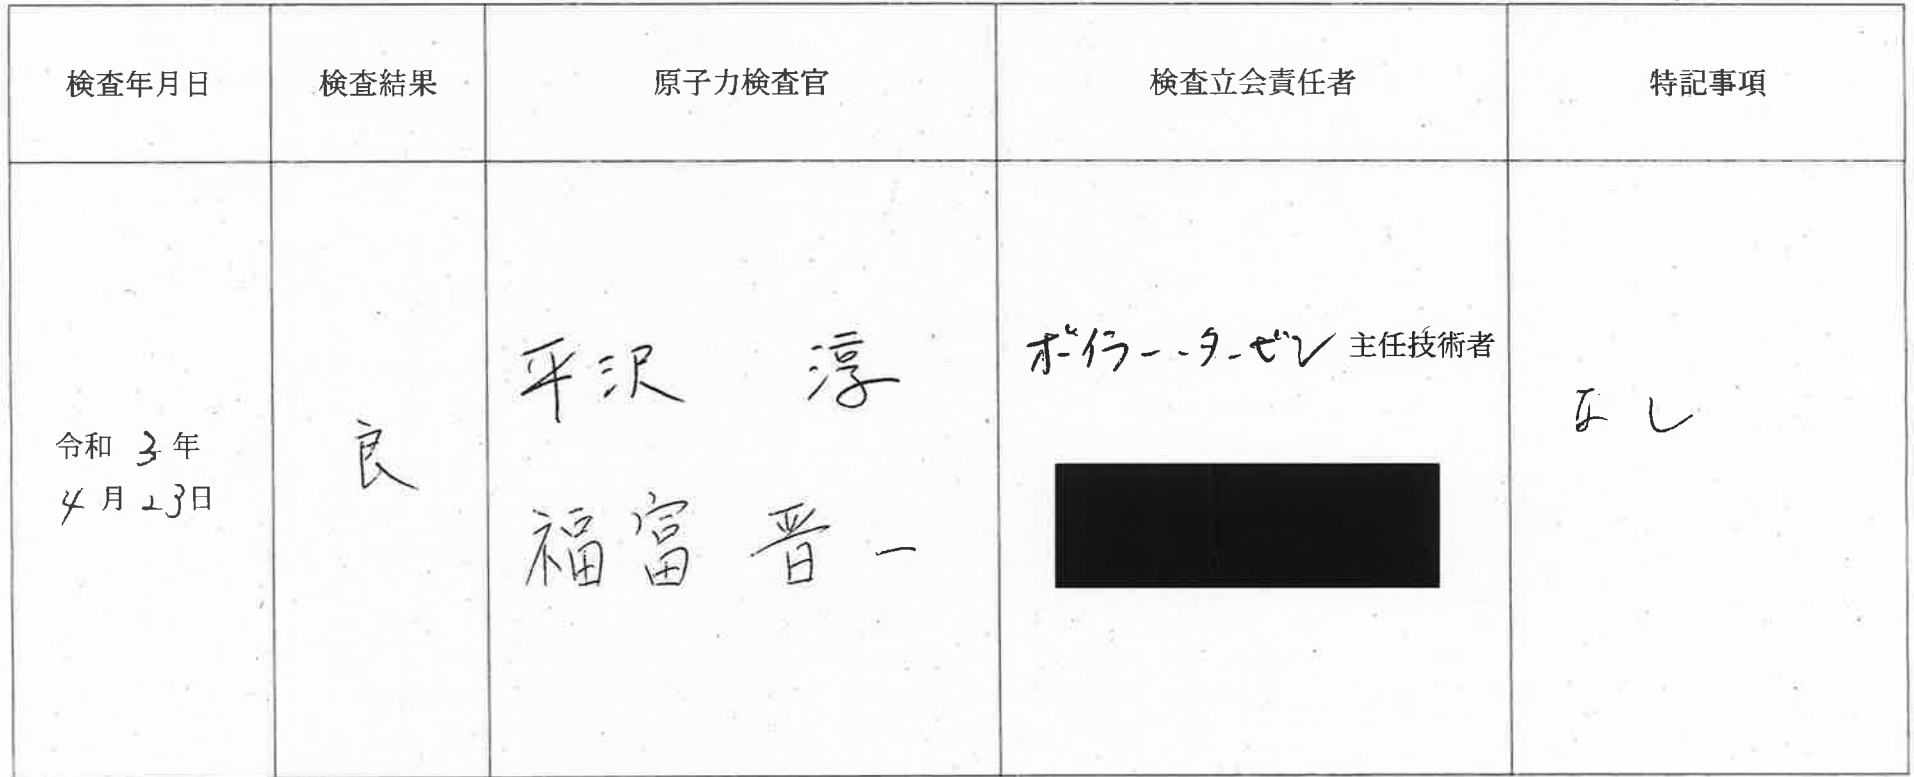 検査年月日
検査結果
原子力検査官
検査立会責任者
特記事項
令和 3 年
4 月 23日
良
平沢 淳
福富 晋一
ボイラー・タービン 主任技術者
なし